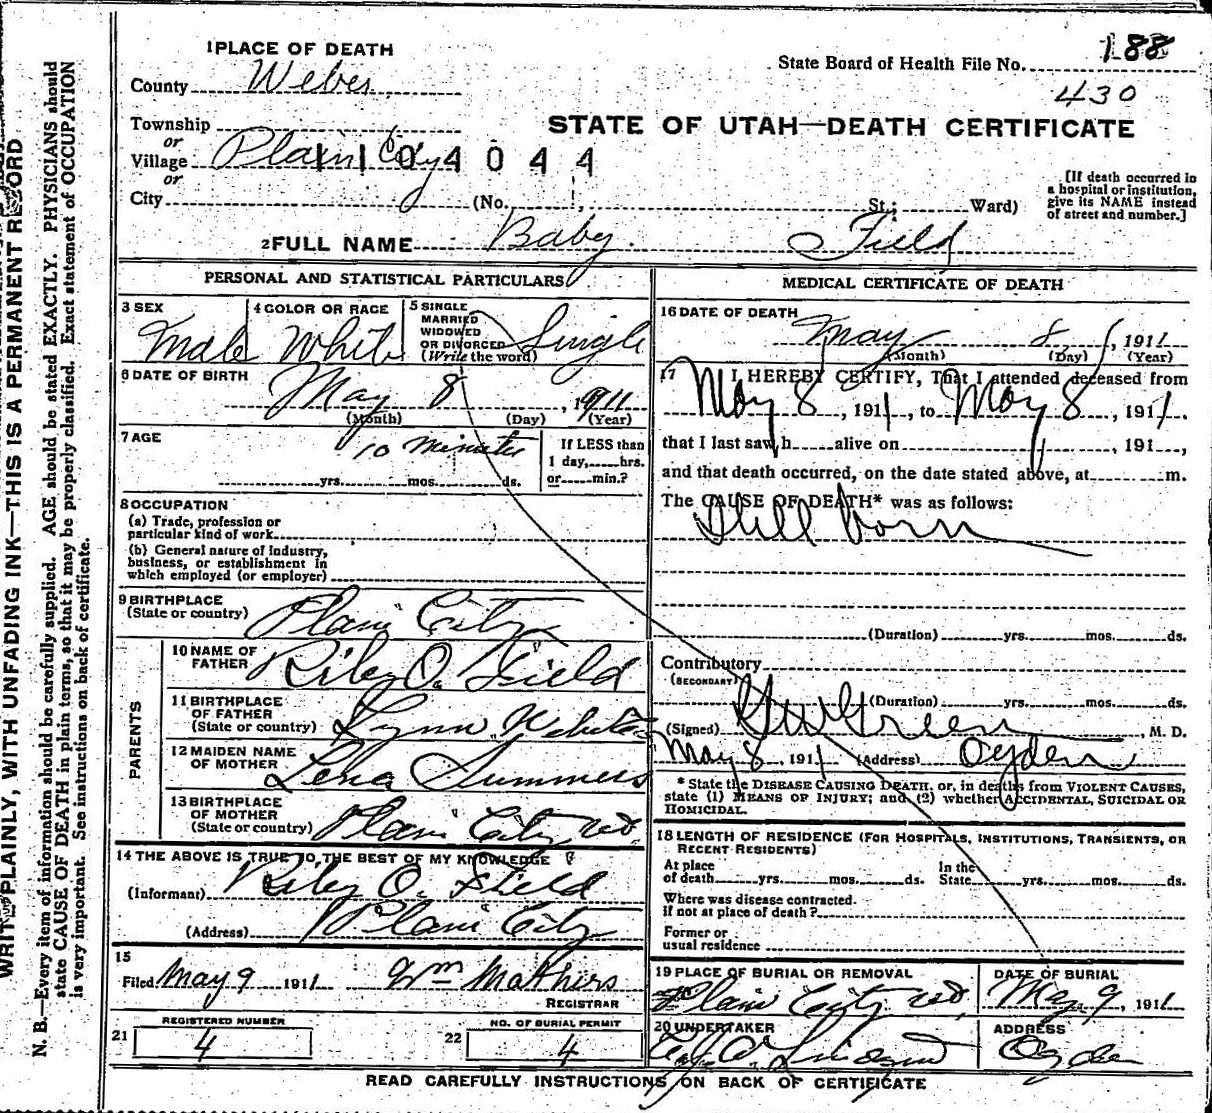 WRITE PLAINLY, WITH UNFADING INK—THIS IS A PERMANENT RECORD
N. B.—Every item of information should be carefully supplied. AGE should be stated EXACTLY. PHYSICIANS should
state CAUSE OF DEATH in plain terms, so that it may be properly classified. Exact statement of OCCUPATION
is very important. See instructions on back of certificate.
1 PLACE OF DEATH
County Weber
Township
or
Village Plain City
or
City
(No. , St.; Ward)
State Board of Health File No. 188
430
STATE OF UTAH—DEATH CERTIFICATE
1104044
[If death occurred in
a hospital or institution,
give its NAME instead
of street and number.]
2 FULL NAME Baby Field
PERSONAL AND STATISTICAL PARTICULARS
3 SEX
Male
4 COLOR OR RACE
White
5 SINGLE
MARRIED
WIDOWED
OR DIVORCED
(Write the word)
Single
6 DATE OF BIRTH
May 8, 1911
(Month) (Day) (Year)
7 AGE
10 minutes
yrs. mos. ds.
If LESS than
1 day, hrs.
or min.?
8 OCCUPATION
(a) Trade, profession or
particular kind of work
(b) General nature of industry,
business, or establishment in
which employed (or employer)
9 BIRTHPLACE
(State or country) Plain City
PARENTS
10 NAME OF
FATHER Riley O. Field
11 BIRTHPLACE
OF FATHER
(State or country) Lynn, Weber
12 MAIDEN NAME
OF MOTHER Lena Summers
13 BIRTHPLACE
OF MOTHER
(State or country) Plain City
14 THE ABOVE IS TRUE TO THE BEST OF MY KNOWLEDGE
(Informant) Riley O. Field
(Address) Plain City
15
Filed May 9 1911 Wm Mathers
REGISTRAR
21 REGISTERED NUMBER
4
22 NO. OF BURIAL PERMIT
4
MEDICAL CERTIFICATE OF DEATH
16 DATE OF DEATH
May 8, 1911
(Month) (Day) (Year)
17 I HEREBY CERTIFY, That I attended deceased from
May 8, 1911, to May 8, 1911.
that I last saw h alive on , 191 ,
and that death occurred, on the date stated above, at m.
The CAUSE OF DEATH* was as follows:
Still born
(Duration) yrs. mos. ds.
Contributory
(SECONDARY)
(Duration) yrs. mos. ds.
(Signed) Green, M. D.
May 8, 1911 (Address) Ogden
* State the DISEASE CAUSING DEATH, or, in deaths from VIOLENT CAUSES,
state (1) MEANS OF INJURY; and (2) whether ACCIDENTAL, SUICIDAL OR
HOMICIDAL.
18 LENGTH OF RESIDENCE (FOR HOSPITALS, INSTITUTIONS, TRANSIENTS, OR
RECENT RESIDENTS)
At place
of death yrs. mos. ds.
In the
State yrs. mos. ds.
Where was disease contracted.
if not at place of death?
Former or
usual residence
19 PLACE OF BURIAL OR REMOVAL
Plain City
DATE OF BURIAL
May 9, 1911
20 UNDERTAKER
ADDRESS
Ogden
READ CAREFULLY INSTRUCTIONS ON BACK OF CERTIFICATE